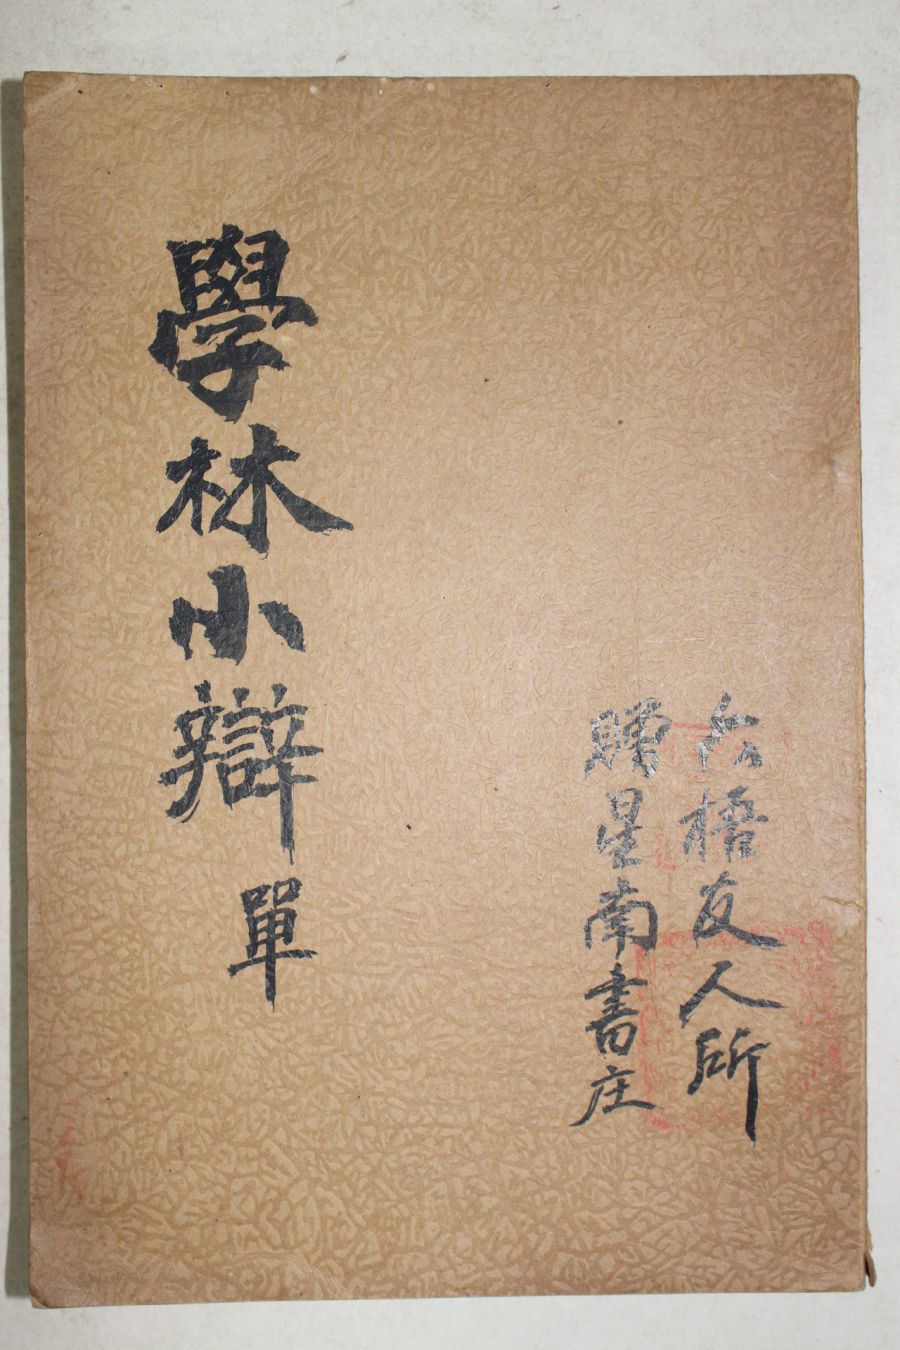 六梧友人所
贈星南書庄
學林小辯 單